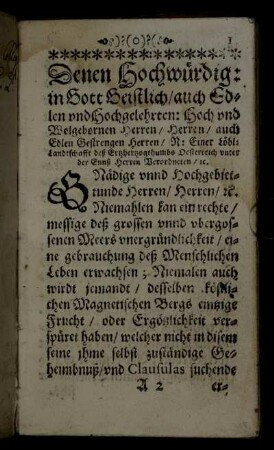 Denen Hochwürdig:
in Gott Geistlich/auch Ed-
len vnd Hochgelehrten: Hoch vnd
Wolgebornen Herren/Herren/auch
Edlen Gestrengen Herren/N: Einer Löbl:
Landtschafft deß Ertzhertzogthumbs Oesterreich vnter
der Ennß Herren Verordneten/ꝛc.
GNädige vnnd Hochgebiet-
tunde Herren/Herren/ꝛc.
Niemahlen kan ein rechte/
messige deß grossen vnnd vbergos-
senen Meers vnergründlichkeit/ ei-
ne gebrauchung deß Menschlichen
Leben erwachsen; Niemalen auch
wirdt jemandt/ desselben köstli-
chen Magnetischen Bergs eintzige
Frucht/ oder Ergötzlichkeit ver-
spüret haben/welcher nicht in disem
seine jhme selbst zuständige Ge-
heimbnuß/vnd Clausulas suchende
A 2 er-